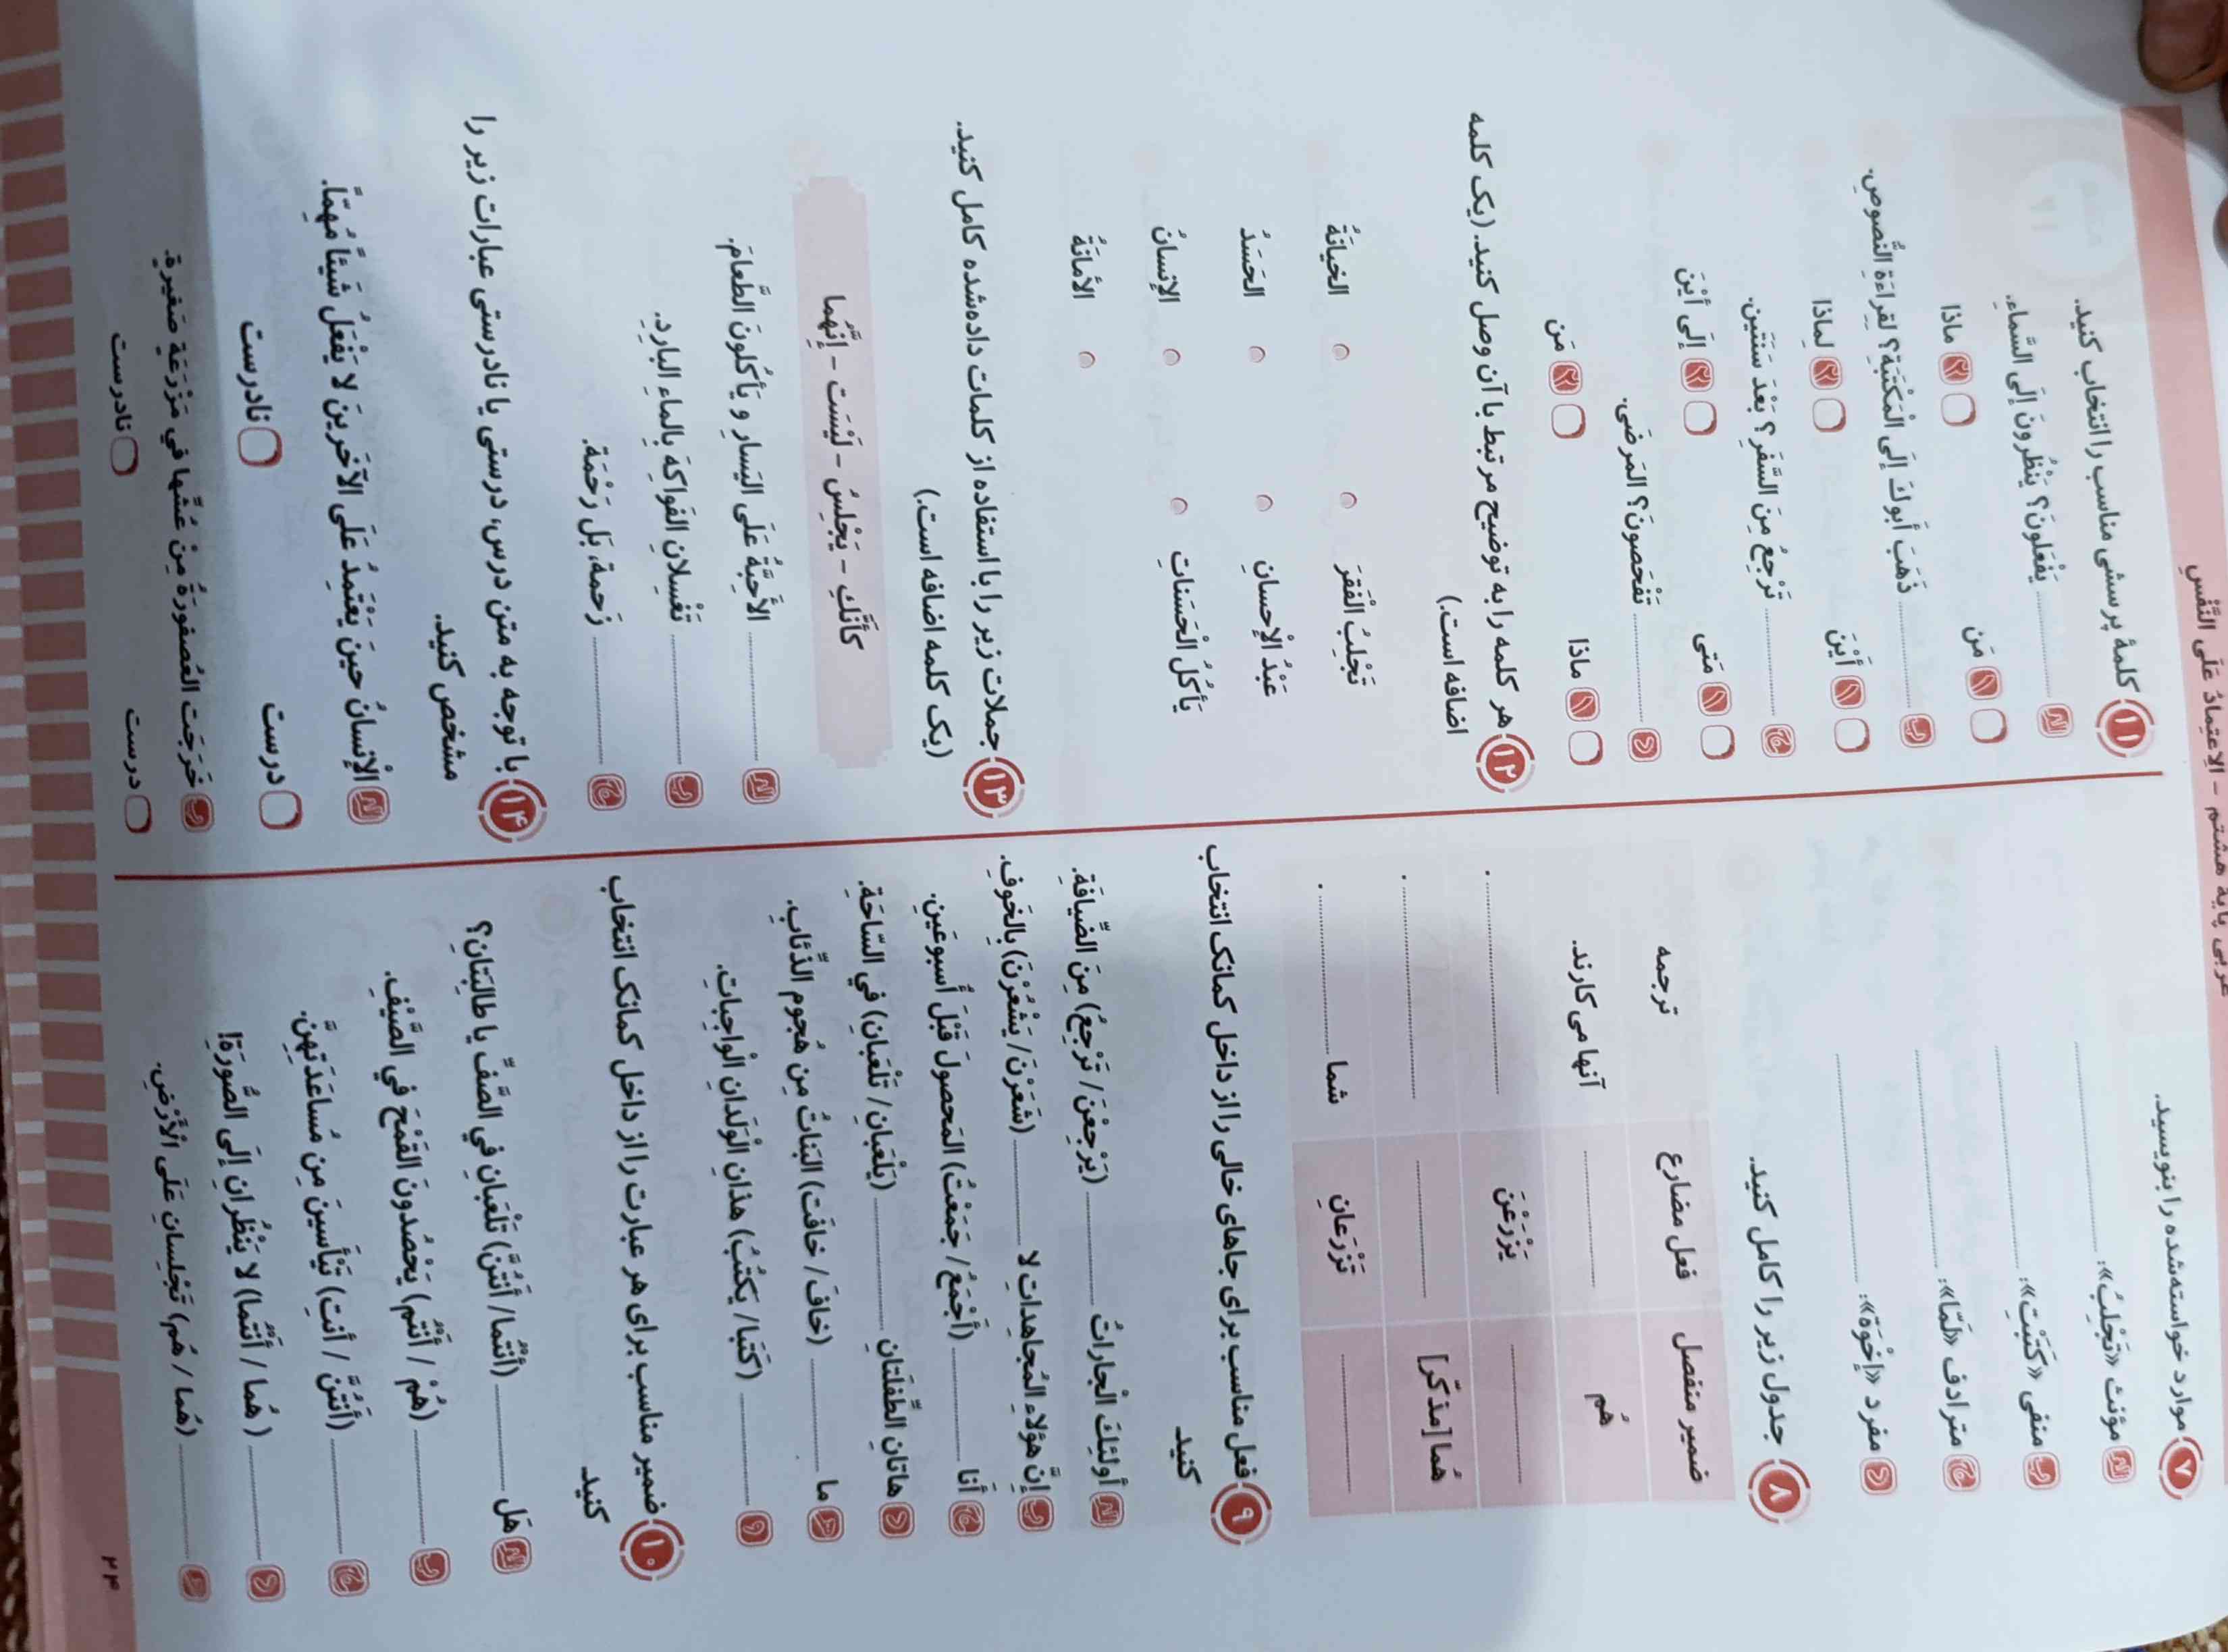 عربی پایهٔ هشتم - الاِعتِمادُ عَلَی النَّفْسِ
۷ موارد خواسته‌شده را بنویسید.
الف مؤنث «تَجْلِبُ»: ..........
ب منفی «کَتَبْتِ»: ..........
ج مترادف «لَمّا»: ..........
د مفرد «إخْوَة»: ..........
۸ جدول زیر را کامل کنید.
ضمیر منفصل فعل مضارع ترجمه
هُم .......... آنها می‌کارند.
.......... یَزْرَعْنَ .......... .
هُما [مذکّر] .......... .......... .
.......... تَزْرَعانِ شما .......... .
۹ فعل مناسب برای جاهای خالی را از داخل کمانک انتخاب
کنید
الف أولئِكَ الْجاراتُ .......... (یَرْجِعْنَ / تَرْجِعُ) مِنَ الضّیافَةِ.
ب إنَّ هؤُلاءِ المُجاهِداتِ لا .......... (شَعَرْنَ / یَشْعُرْنَ) بِالخَوفِ.
ج أنا .......... (أجْمَعُ / جَمَعْتُ) المَحصولَ قَبْلَ أُسبوعَینِ.
د هاتانِ الطِّفلَتانِ .......... (یَلْعَبانِ / تَلْعَبانِ) فِي السّاحَةِ.
هـ ما .......... (خافَ / خافَت) البَناتُ مِن هُجومِ الذِّئابِ.
و .......... (کَتَبا / یَکتُبُ) هٰذانِ الْوَلَدانِ الْواجِباتِ.
۱۰ ضمیر مناسب برای هر عبارت را از داخل کمانک انتخاب
کنید
الف هَل .......... (أَنْتُما / أَنْتُنَّ) تَلْعَبانِ فِي الصَّفِّ یا طالِبَتانِ؟
ب .......... (هُمْ / أَنْتُم) یَحْصُدونَ القَمْحَ في الصَّیْفِ.
ج .......... (أَنْتُنَّ / أنتِ) تَیْأَسینَ مِن مُساعَدَتِهِنَّ.
د .......... (هُما / أَنْتُما) لا یَنْظُرانِ إلَی الصُّورَةِ!
هـ .......... (هُما / هُم) تَجْلِسانِ عَلَی الْأَرْضِ.
۱۱ کلمهٔ پرسشی مناسب را انتخاب کنید.
الف .......... یَفْعَلونَ؟ یَنْظُرونَ إلَی السَّماءِ.
۱ مَن ۲ ماذا
ب .......... ذَهَبَ أَبوكَ إلَی الْمَکْتَبَةِ؟ لِقِراءَةِ النُّصوصِ.
۱ أیْنَ ۲ لِماذا
ج .......... تَرْجِعُ مِنَ السَّفَرِ؟ بَعْدَ سَنَتَینِ.
۱ مَتی ۲ إلَی أَیْنَ
د .......... تَفْحَصونَ؟ المَرضَی.
۱ ماذا ۲ مَن
۱۲ هر کلمه را به توضیح مرتبط با آن وصل کنید. (یک کلمه
اضافه است.)
تَجْلِبُ الْفَقرَ الخیانَةُ
عَبْدُ الْإحسانِ الحَسَدُ
یَأْکُلُ الْحَسَناتِ الإنسانُ
الأمانَةُ
۱۳ جملات زیر را با استفاده از کلمات داده‌شده کامل کنید.
(یک کلمه اضافه است.)
کَأَنَّكِ - یَجْلِسُ - لَیْسَت - إنَّهُما
الف .......... الأَحِبَّةُ عَلَی الیَسارِ و یَأْکُلونَ الطَّعامَ.
ب .......... تَغْسِلانِ الفَواکِهَ بِالماءِ البارِدِ.
ج .......... زَحمة، بَل رَحْمَة.
۱۴ با توجه به متن درس، درستی یا نادرستی عبارات زیر را
مشخص کنید.
الف الْإنسانُ حینَ یَعْتَمِدُ عَلَی الآخَرینَ لا یَفْعَلُ شَیْئاً مُهِمّاً.
درست نادرست
ب خَرَجَت العُصفورَةُ مِنْ عُشِّها في مَزْرَعَةٍ صَغیرةٍ.
درست نادرست
۲۴